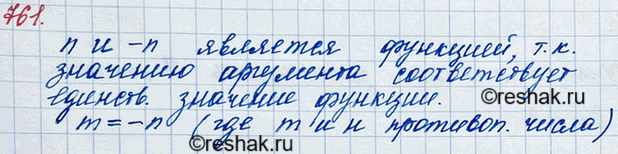 761.
n и -n является функцией, т.к.
значению аргумента соответствует
единств. значение функции.
©reshak.ru
m = -n (где m и н противоп. числа)
©reshak.ru